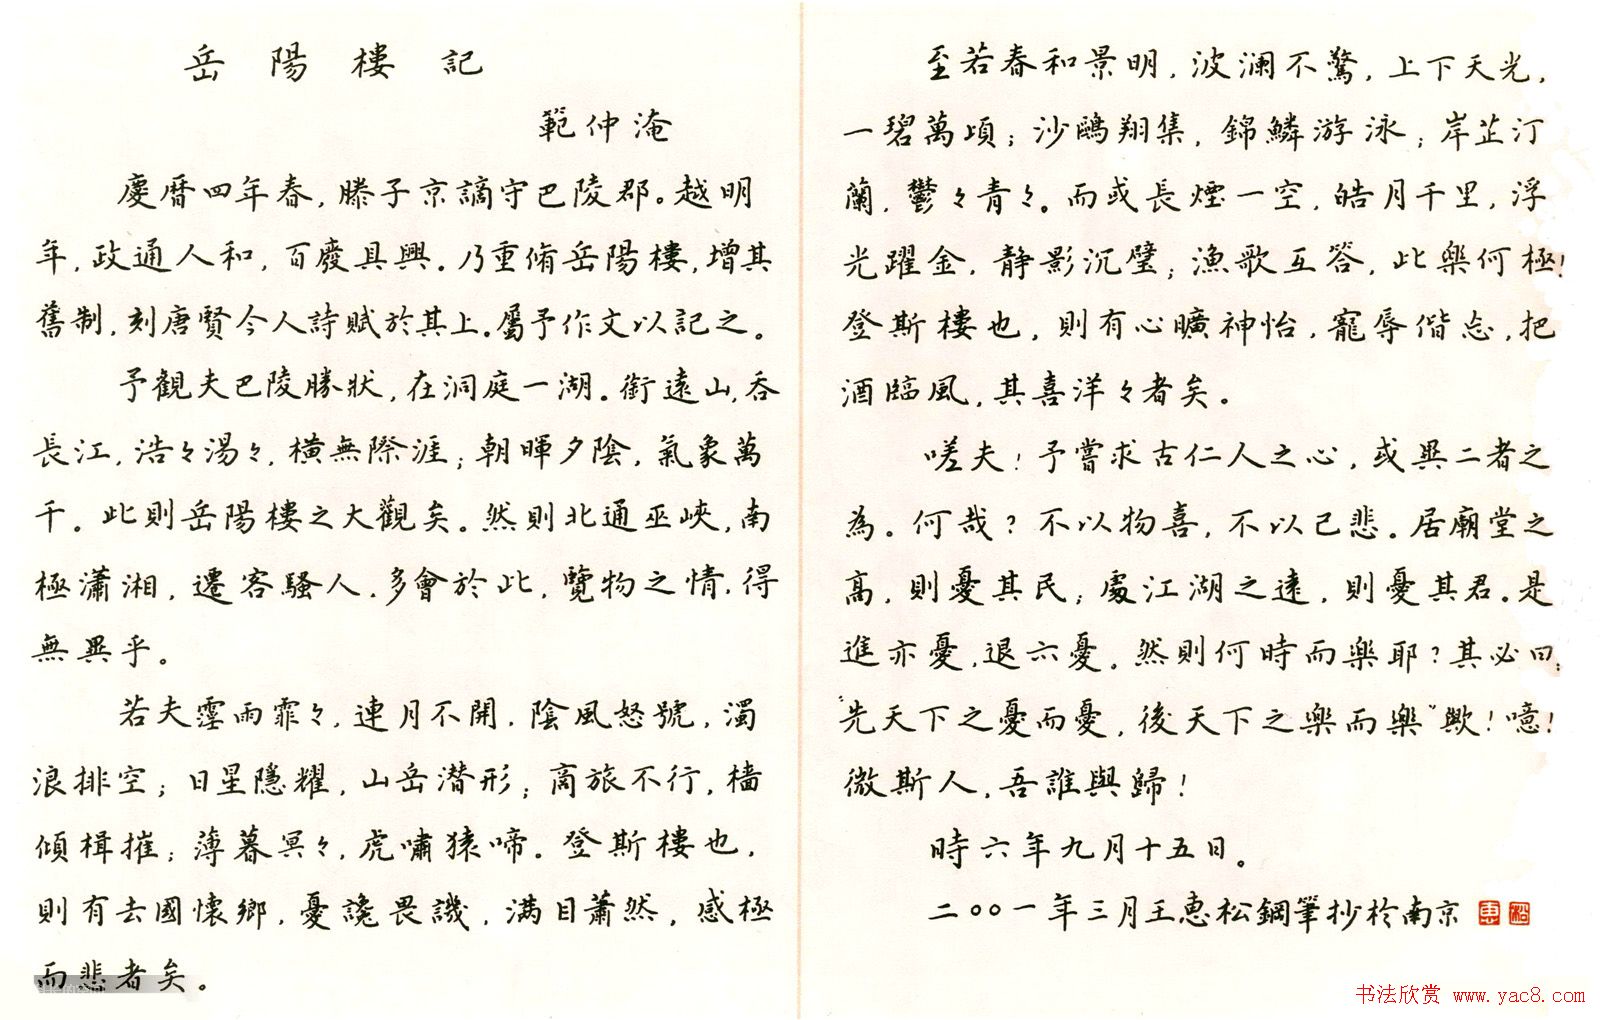 岳陽樓記
範仲淹
慶曆四年春,滕子京謫守巴陵郡。越明
年,政通人和,百廢具興。乃重脩岳陽樓,增其
舊制,刻唐賢今人詩賦於其上。屬予作文以記之。
予觀夫巴陵勝狀,在洞庭一湖。銜遠山,吞
長江,浩々湯々,橫無際涯;朝暉夕陰,氣象萬
千。此則岳陽樓之大觀矣。然則北通巫峽,南
極瀟湘,遷客騷人,多會於此,覽物之情,得
無異乎。
若夫霪雨霏々,連月不開,陰風怒號,濁
浪排空;日星隱耀,山岳潛形;商旅不行,檣
傾楫摧;薄暮冥々,虎嘯猿啼。登斯樓也,
則有去國懷鄉,憂讒畏譏,滿目蕭然,感極
而悲者矣。
至若春和景明,波瀾不驚,上下天光,
一碧萬頃;沙鷗翔集,錦鱗游泳;岸芷汀
蘭,鬱々青々。而或長煙一空,皓月千里,浮
光躍金,靜影沉璧;漁歌互答,此樂何極!
登斯樓也,則有心曠神怡,寵辱偕忘,把
酒臨風,其喜洋々者矣。
嗟夫!予嘗求古仁人之心,或異二者之
為。何哉?不以物喜,不以己悲。居廟堂之
高,則憂其民;處江湖之遠,則憂其君。是
進亦憂,退亦憂,然則何時而樂耶?其必曰:
"先天下之憂而憂,後天下之樂而樂"歟!噫!
微斯人,吾誰與歸!
時六年九月十五日。
二〇〇一年三月王惠松鋼筆抄於南京 惠 松
书法欣赏 www.yac8.com